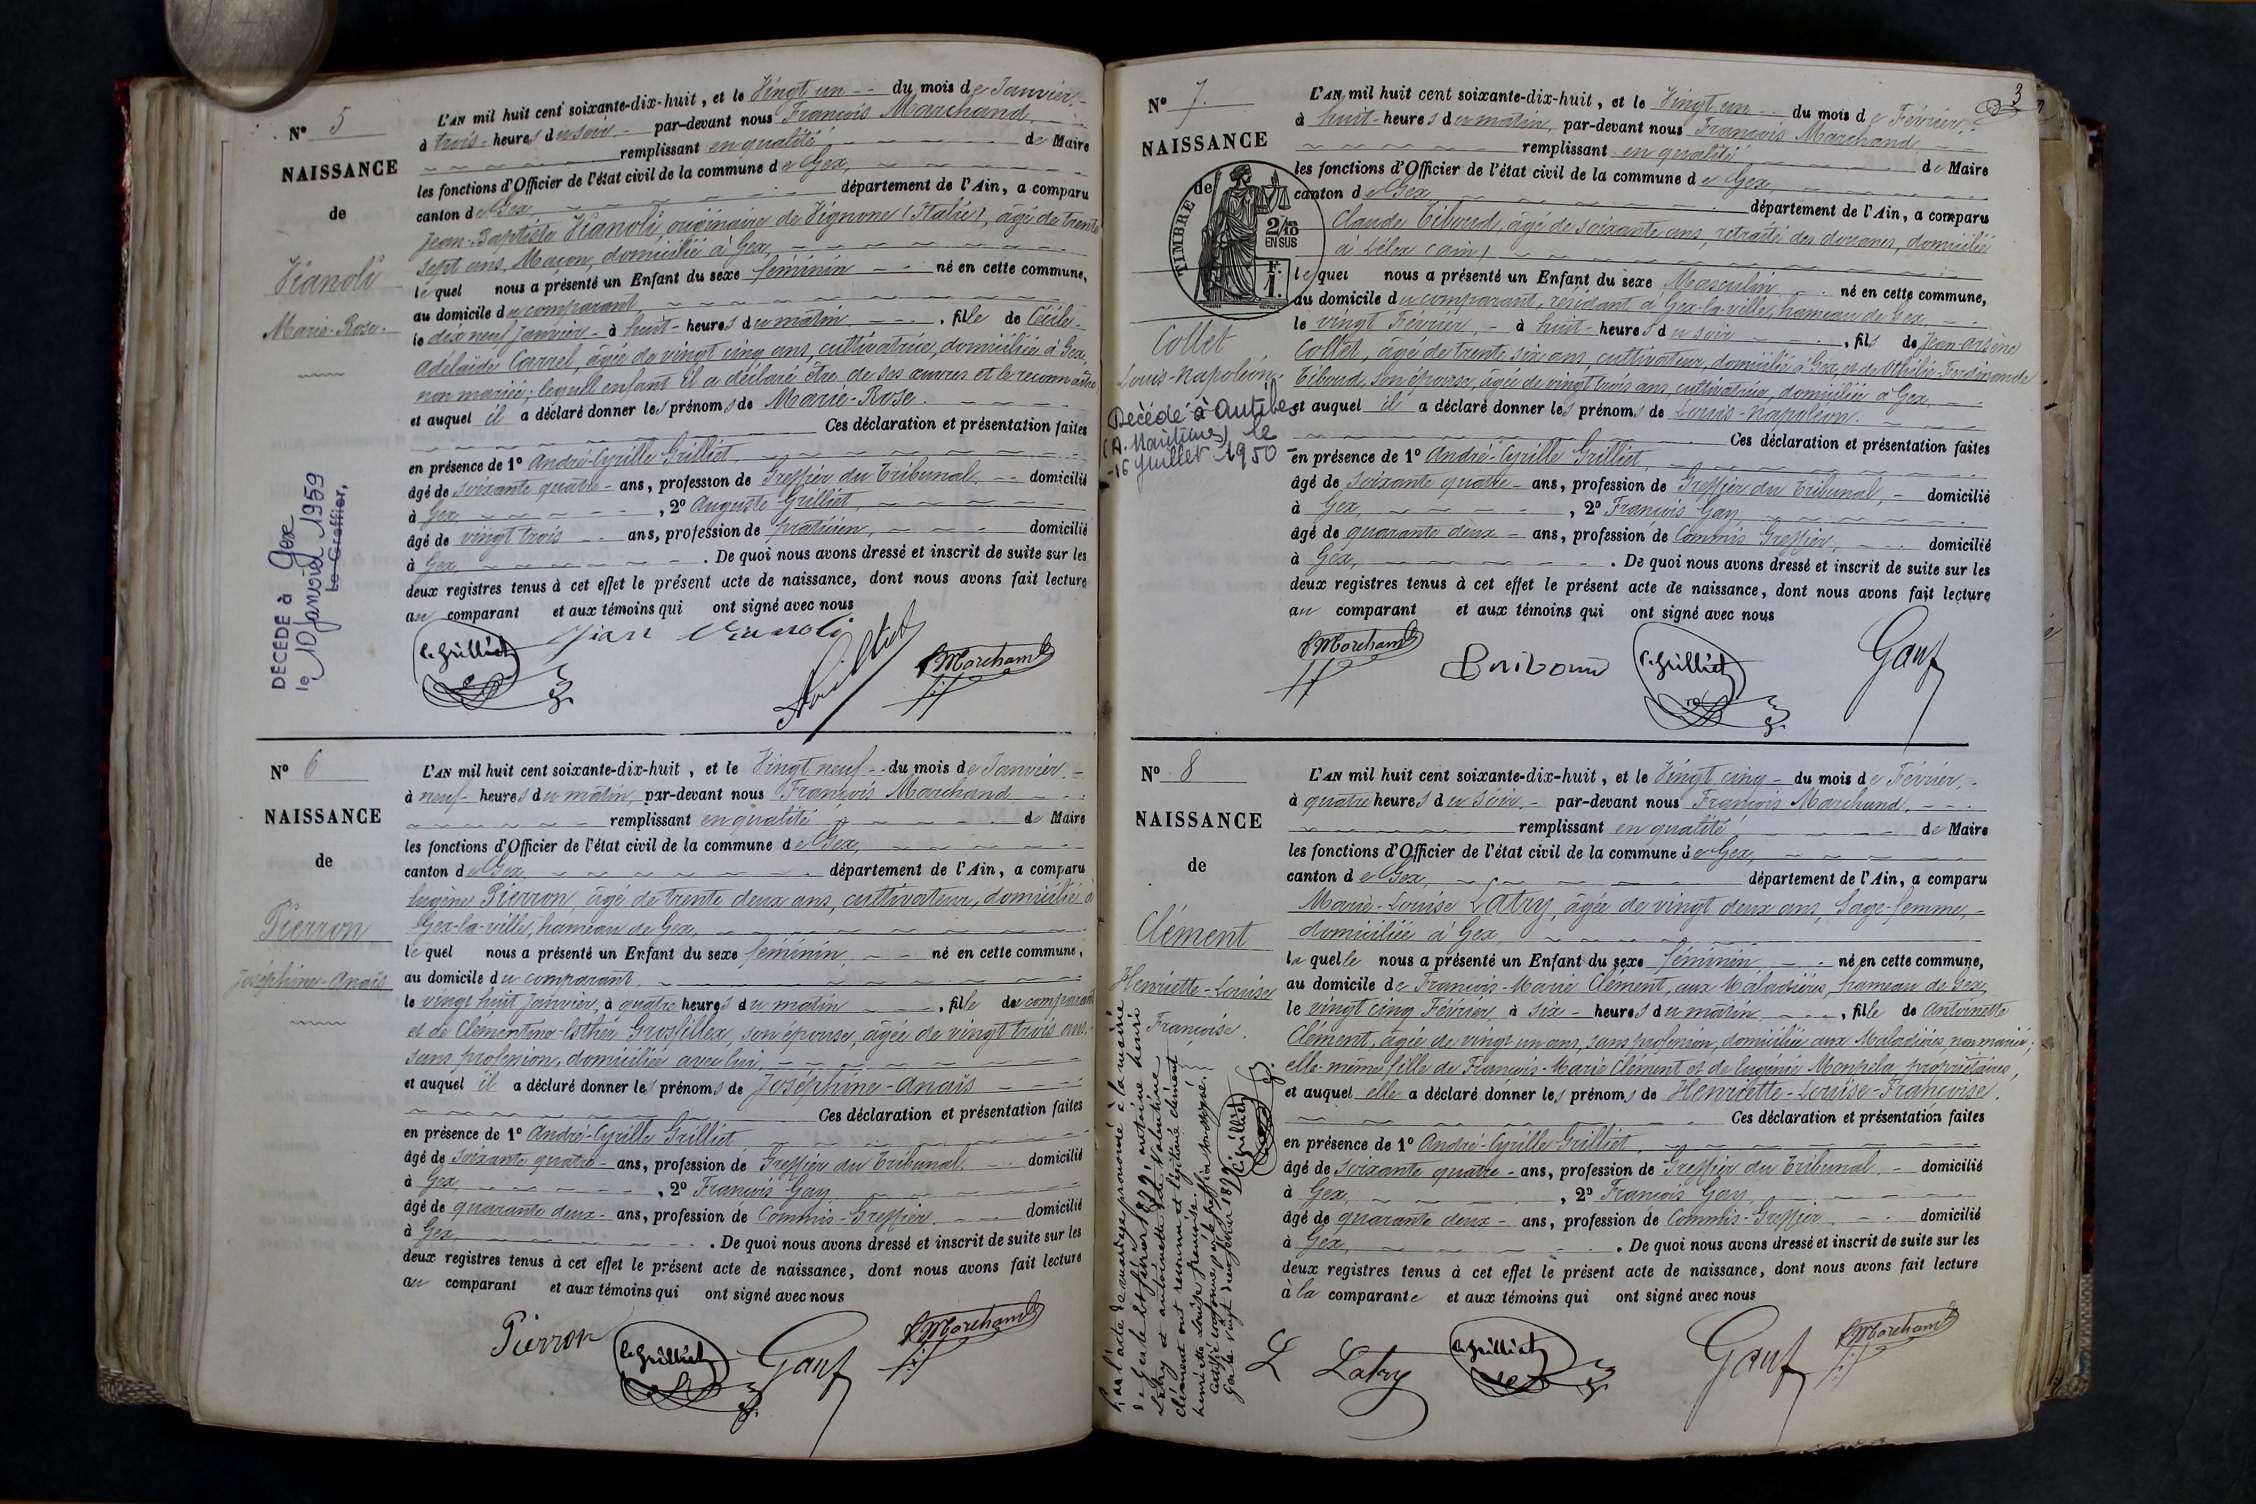 N° 5
NAISSANCE
de
Vianoli
Marie-Rose
DÉCÉDÉ à Gex
le 10 janvier 1959
Le Greffier,
L'AN mil huit cent soixante-dix-huit, et le Vingt un du mois de Janvier
à trois heures du soir par-devant nous François Marchand
remplissant en qualité de Maire
les fonctions d'Officier de l'état civil de la commune de Gex,
canton de Gex département de l'Ain, a comparu
Jean-Baptiste Vianoli, originaire de Vignone (Italie), âgé de trente
sept ans, Maçon, domicilié à Gex,
lequel nous a présenté un Enfant du sexe féminin né en cette commune,
au domicile du comparant
le dix neuf Janvier à huit heures du matin, fille de Cécile-
Adélaïde Carrel, âgée de vingt cinq ans, cultivatrice, domiciliée à Gex,
non mariée; lequel enfant il a déclaré être de ses œuvres et le reconnaître
et auquel il a déclaré donner les prénoms de Marie-Rose.
Ces déclaration et présentation faites
en présence de 1° André-Cyrille Grilliet
âgé de soixante quatre ans, profession de Greffier du Tribunal, domicilié
à Gex, 2° Auguste Grilliet,
âgé de vingt trois ans, profession de praticien, domicilié
à Gex. De quoi nous avons dressé et inscrit de suite sur les
deux registres tenus à cet effet le présent acte de naissance, dont nous avons fait lecture
au comparant et aux témoins qui ont signé avec nous
C. Grilliet Jean Vianoli A. Grilliet F. Marchand
N° 6
NAISSANCE
de
Pierron
Joséphine-Anaïs
L'AN mil huit cent soixante-dix-huit, et le Vingt neuf du mois de Janvier
à neuf heures du matin, par-devant nous François Marchand
remplissant en qualité de Maire
les fonctions d'Officier de l'état civil de la commune de Gex,
canton de Gex, département de l'Ain, a comparu
Eugène Pierron, âgé de trente deux ans, cultivateur, domicilié à
Gex-la-ville, hameau de Gex,
lequel nous a présenté un Enfant du sexe féminin, né en cette commune,
au domicile du comparant
le vingt huit Janvier, à quatre heures du matin, fille du comparant
et de Clémentine-Esther Grosfillex, son épouse, âgée de vingt trois ans,
sans profession, domiciliée avec lui,
et auquel il a déclaré donner les prénoms de Joséphine-Anaïs
Ces déclaration et présentation faites
en présence de 1° André-Cyrille Grilliet
âgé de soixante quatre ans, profession de Greffier du Tribunal, domicilié
à Gex, 2° François Gay
âgé de quarante deux ans, profession de Commis-Greffier domicilié
à Gex. De quoi nous avons dressé et inscrit de suite sur les
deux registres tenus à cet effet le présent acte de naissance, dont nous avons fait lecture
au comparant et aux témoins qui ont signé avec nous
Pierron C. Grilliet Gay F. Marchand
3
N° 7
NAISSANCE
de
TIMBRE
2/10
EN SUS
1 F.
Collet
Louis-Napoléon
Décédé à Antibes
(A. Maritimes) le
16 Juillet 1950
L'AN mil huit cent soixante-dix-huit, et le Vingt un du mois de Février
à huit heures du matin, par-devant nous François Marchand
remplissant en qualité de Maire
les fonctions d'Officier de l'état civil de la commune de Gex,
canton de Gex département de l'Ain, a comparu
Claude Tiboud, âgé de soixante ans, retraité des douanes, domicilié
à Lélex (Ain)
lequel nous a présenté un Enfant du sexe Masculin né en cette commune,
au domicile du comparant, résidant à Gex-la-ville, hameau de Gex,
le vingt Février, à huit heures du soir, fils de Jean-Arsène
Collet, âgé de trente six ans, cultivateur, domicilié à Gex, et de Othilie-Ferdinande
Tiboud, son épouse, âgée de vingt trois ans, cultivatrice, domiciliée à Gex,
et auquel il a déclaré donner les prénoms de Louis-Napoléon.
Ces déclaration et présentation faites
en présence de 1° André-Cyrille Grilliet,
âgé de soixante quatre ans, profession de Greffier du Tribunal, domicilié
à Gex, 2° François Gay
âgé de quarante deux ans, profession de Commis Greffier, domicilié
à Gex. De quoi nous avons dressé et inscrit de suite sur les
deux registres tenus à cet effet le présent acte de naissance, dont nous avons fait lecture
au comparant et aux témoins qui ont signé avec nous
F. Marchand C. Grilliet Gay
N° 8
NAISSANCE
de
Clément
Henriette-Louise
Françoise.
Par l'acte de mariage prononcé à la mairie
de Gex le 1er février 1879, antoine henri
Latry et antoinette Valentine
clément ont reconnu et légitimé clément
henriette Louise françoise.
certifié conforme par le greffier soussigné.
C. Grilliet
L'AN mil huit cent soixante-dix-huit, et le Vingt cinq du mois de Février
à quatre heures du soir, par-devant nous François Marchand,
remplissant en qualité de Maire
les fonctions d'Officier de l'état civil de la commune de Gex,
canton de Gex, département de l'Ain, a comparu
Marie-Louise Latry, âgée de vingt deux ans, Sage-femme,
domiciliée à Gex,
laquelle nous a présenté un Enfant du sexe féminin né en cette commune,
au domicile de François-Marie Clément, aux Maladières, hameau de Gex,
le vingt cinq Février, à six heures du matin, fille de Antoinette
Clément, âgée de vingt un ans, sans profession, domiciliée aux Maladières, non mariée;
elle-même fille de François-Marie Clément et de Eugénie Monpela, propriétaires,
et auquel elle a déclaré donner les prénoms de Henriette-Louise-Françoise.
Ces déclaration et présentation faites
en présence de 1° André-Cyrille Grilliet,
âgé de soixante quatre ans, profession de Greffier du Tribunal domicilié
à Gex, 2° François Gay
âgé de quarante deux ans, profession de Commis-Greffier domicilié
à Gex, De quoi nous avons dressé et inscrit de suite sur les
deux registres tenus à cet effet le présent acte de naissance, dont nous avons fait lecture
à la comparante et aux témoins qui ont signé avec nous
L Latry C. Grilliet Gay F. Marchand